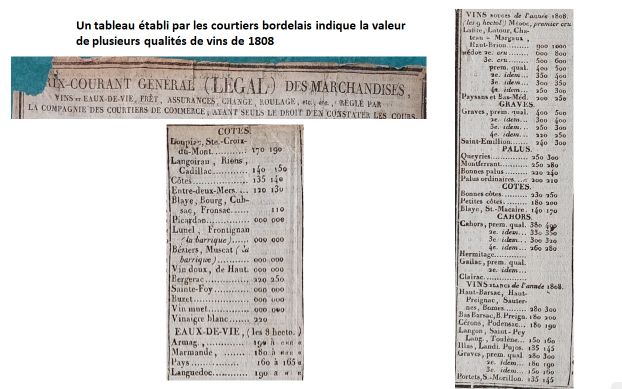 Un tableau établi par les courtiers bordelais indique la valeur
de plusieurs qualités de vins de 1808
IX-COURANT GÉNÉRAL (LÉGAL) DES MARCHANDISES,
VINS et EAUX-DE-VIE, FRÊT, ASSURANCES, CHANGE, ROULAGE, etc., etc., RÉGLÉ PAR
LA COMPAGNIE DES COURTIERS DE COMMERCE, AYANT SEULS LE DROIT D'EN CONSTATER LES COURS
COTES.
Loupiac, Ste.-Croix-
du-Mont 170 190
Langoiran, Rions,
Cadillac 140 150
Côtes 135 140
Entre-deux-Mers 120 130
Blaye, Bourg, Cub-
sac, Fronsac 110
Picardan 000 000
Lunel, Frontignan
(la barrique) 000 000
Béziers, Muscat (la
barrique) 000 000
Vin doux, de Haut. 000 000
Bergerac 220 250
Sainte-Foy 000 000
Buzet 000 000
Vin muet 000 000
Vinaigre blanc 220
EAUX-DE-VIE, (les 8 hecto.)
Armag. 190 à
Marmande, 180 à
Pays 160 à 165
Languedoc 190 à
VINS ROUGES de l'année 1808.
(les 9 hectol) Médoc, premier cru
Lafite, Latour, Cha-
teau-Margaux,
Haut-Brion 900 1000
Médoc 2e. cru 600 800
3e. cru 500 600
prem. qual. 400 500
2e. idem 350 400
3e. idem 300 350
4e. idem 250 300
Paysans et Bas-Méd. 200 250
GRAVES.
Graves, prem. qual. 400 500
2e. idem 300 400
3e. idem 250 300
4e. idem 220 250
Saint-Emillion 240 300
PALUS.
Queyries 250 300
Montferrant 250 280
Bonnes palus 220 240
Palus ordinaires 200 210
COTES.
Bonnes côtes 230 250
Petites côtes 180 200
Blaye, St.-Macaire. 140 170
CAHORS.
Cahors, prem. qual. 380 400
2e. idem 330 350
3e. idem 300 320
4e. idem 260 280
Hermitage
Gaillac, prem. qual.
2e. idem
Clairac
VINS BLANCS de l'année 1808.
Haut-Barsac, Haut-
Preignac, Sauter-
nes, Bomes 280 300
Bas Barsac, B. Preign. 180 200
Cérons, Podensac 180 190
Langon, Saint-Pey
Lang., Toulène 150 160
Illas, Landi. Pujos. 135 145
Graves, prem. qual. 280 300
2e. idem 180 200
3e. idem 150 160
Portets, S.-Morillon 135 145